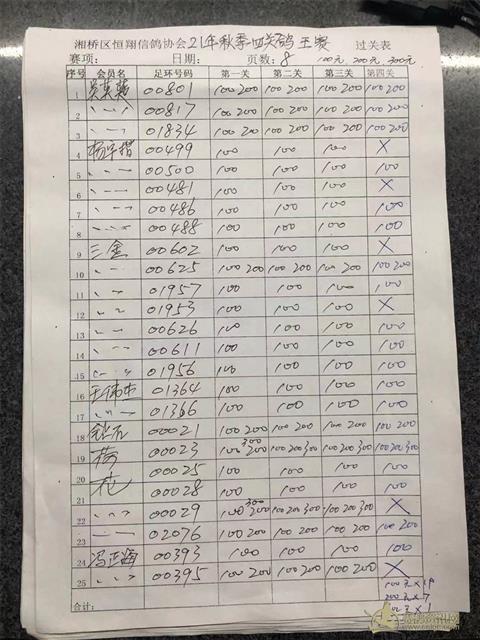 湘桥区恒翔信鸽协会21年秋季四关鸽王赛 过关表
赛项: 日期: 页数:8 100元,200元,300元
序号 会员名 足环号码 第一关 第二关 第三关 第四关
1 00801 100 200 100 200 100 200 100 200
2 00817 100 200 100 200 100 200 100 200
3 01834 100 200 100 200 100 200 100 200
4 00499 100 100 100 X
5 00500 100 100 100 100
6 00481 100 100 100 X
7 00486 100 100 100 100
8 00488 100 100 100 100
9 三金 00602 100 100 100 X
10 00625 100 200 100 200 100 200 100 200
11 01957 100 100 100 100
12 01953 100 100 100 X
13 00626 100 100 100 100
14 00611 100 100 100 100
15 01956 100 100 100 100
16 王伟杰 01364 100 100 100 100
17 01366 100 100 100 100
18 钻石 00021 100 200 100 200 100 200 100 200
19 梅 00023 100 200 300 100 200 300 100 200 300 100 200 300
20 00025 100 100 100 100
21 花 00028 100 100 100 100
22 00029 100 200 300 100 200 300 100 200 300 X
23 02076 100 200 100 200 100 200 100 200
24 00393 100 100 100 100
25 00395 100 200 100 200 100 200 X
合计: 100元×19
200元×7